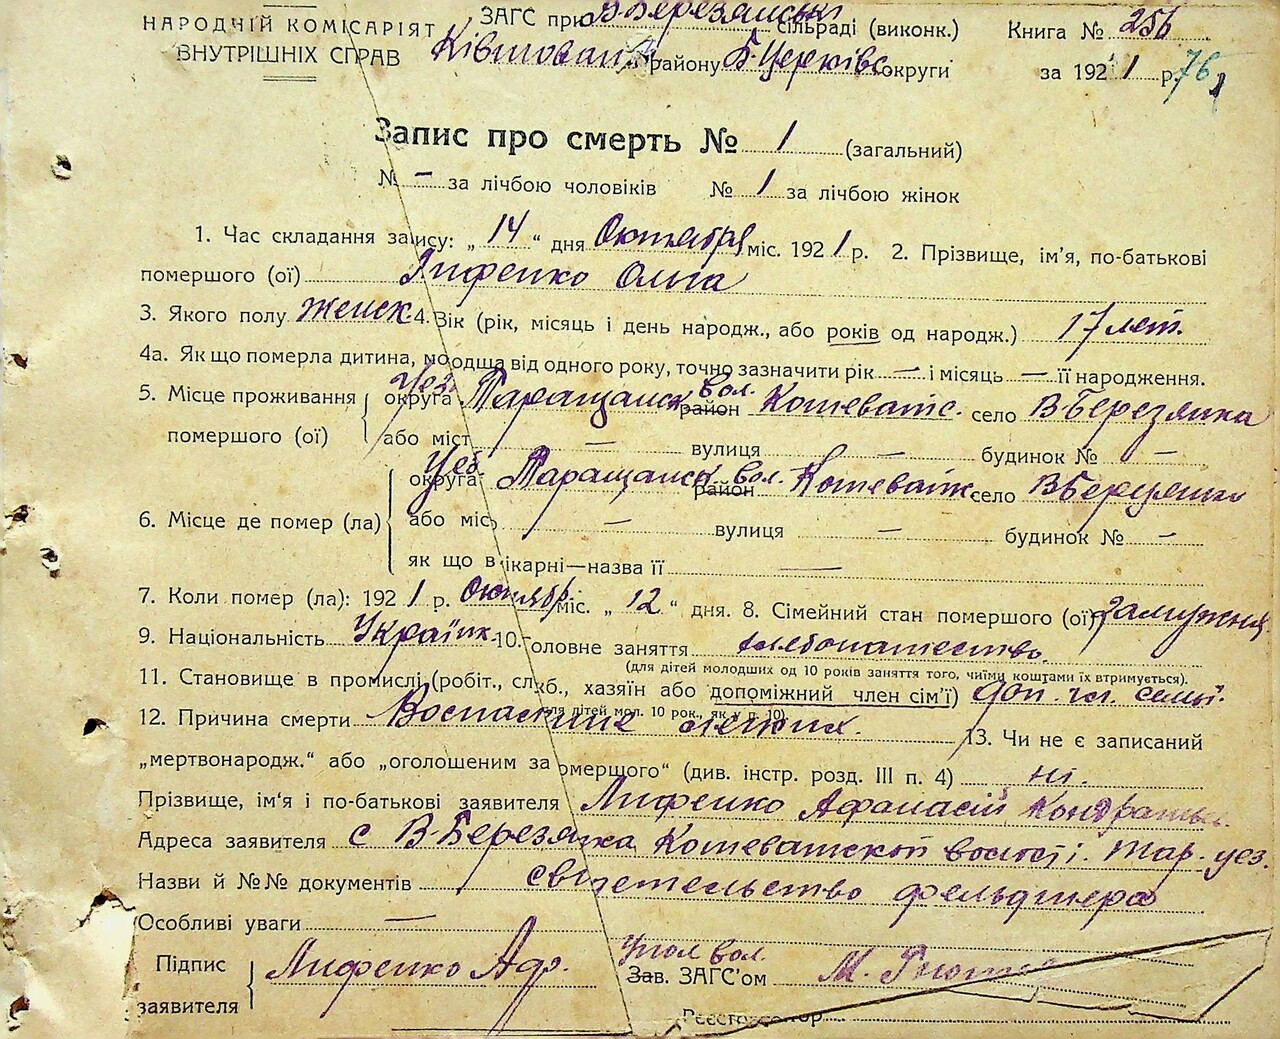 НАРОДЧІЙ КОМІСАРІЯТ
ВНУТРІШНІХ СПРАВ
ЗАГС при В Березянські сільраді (виконк.)
району Б-Церківс. округи
Книга № 256
за 1921 р. 76
Запис про смерть № 1 (загальний)
№ — за лічбою чоловіків № 1 за лічбою жінок
1. Час складання запису: „ 14 “ дня Октября міс. 1921 р. 2. Прізвище, ім'я, по-батькові
помершого (ої) Лифенко Ольга
3. Якого полу женск. 4. Вік (рік, місяць і день народж., або років од народж.) 17 лет.
4а. Як що померла дитина, молодша від одного року, точно зазначити рік — і місяць — її народження.
5. Місце проживання помершого (ої) округа Уез. Таращанск район вол. Кошеватс. село В Березянка
або міст — вулиця — будинок № —
6. Місце де помер (ла) округа Уез. Таращанск район вол. Кошеватск село В Березянка
або міс — вулиця — будинок № —
як що в лікарні—назва її —
7. Коли помер (ла): 1921 р. Октябр міс. „ 12 “ дня. 8. Сімейний стан помершого (ої) Замужня
9. Національність Українк. 10. Головне заняття хлебопашество.
(для дітей молодших од 10 років заняття того, чиїми коштами їх втримується).
11. Становище в промислі (робіт., служб., хазяїн або допоміжний член сім'ї) доп. чл. семьї.
для дітей мол. 10 рок., як у п. 10)
12. Причина смерти Воспаление легких. 13. Чи не є записаний
„мертвонародж.“ або „оголошеним за помершого“ (див. інстр. розд. III п. 4) ні.
Прізвище, ім'я і по-батькові заявителя Лифенко Афанасій
Адреса заявителя с В Березянка Кошеватской волості. Тар. уез.
Назви й №№ документів свідетельство фельдшера
Особливі уваги —
Підпис заявителя Лифенко Аф.
Зав. ЗАГС'ом вол. М.
Реєстратор